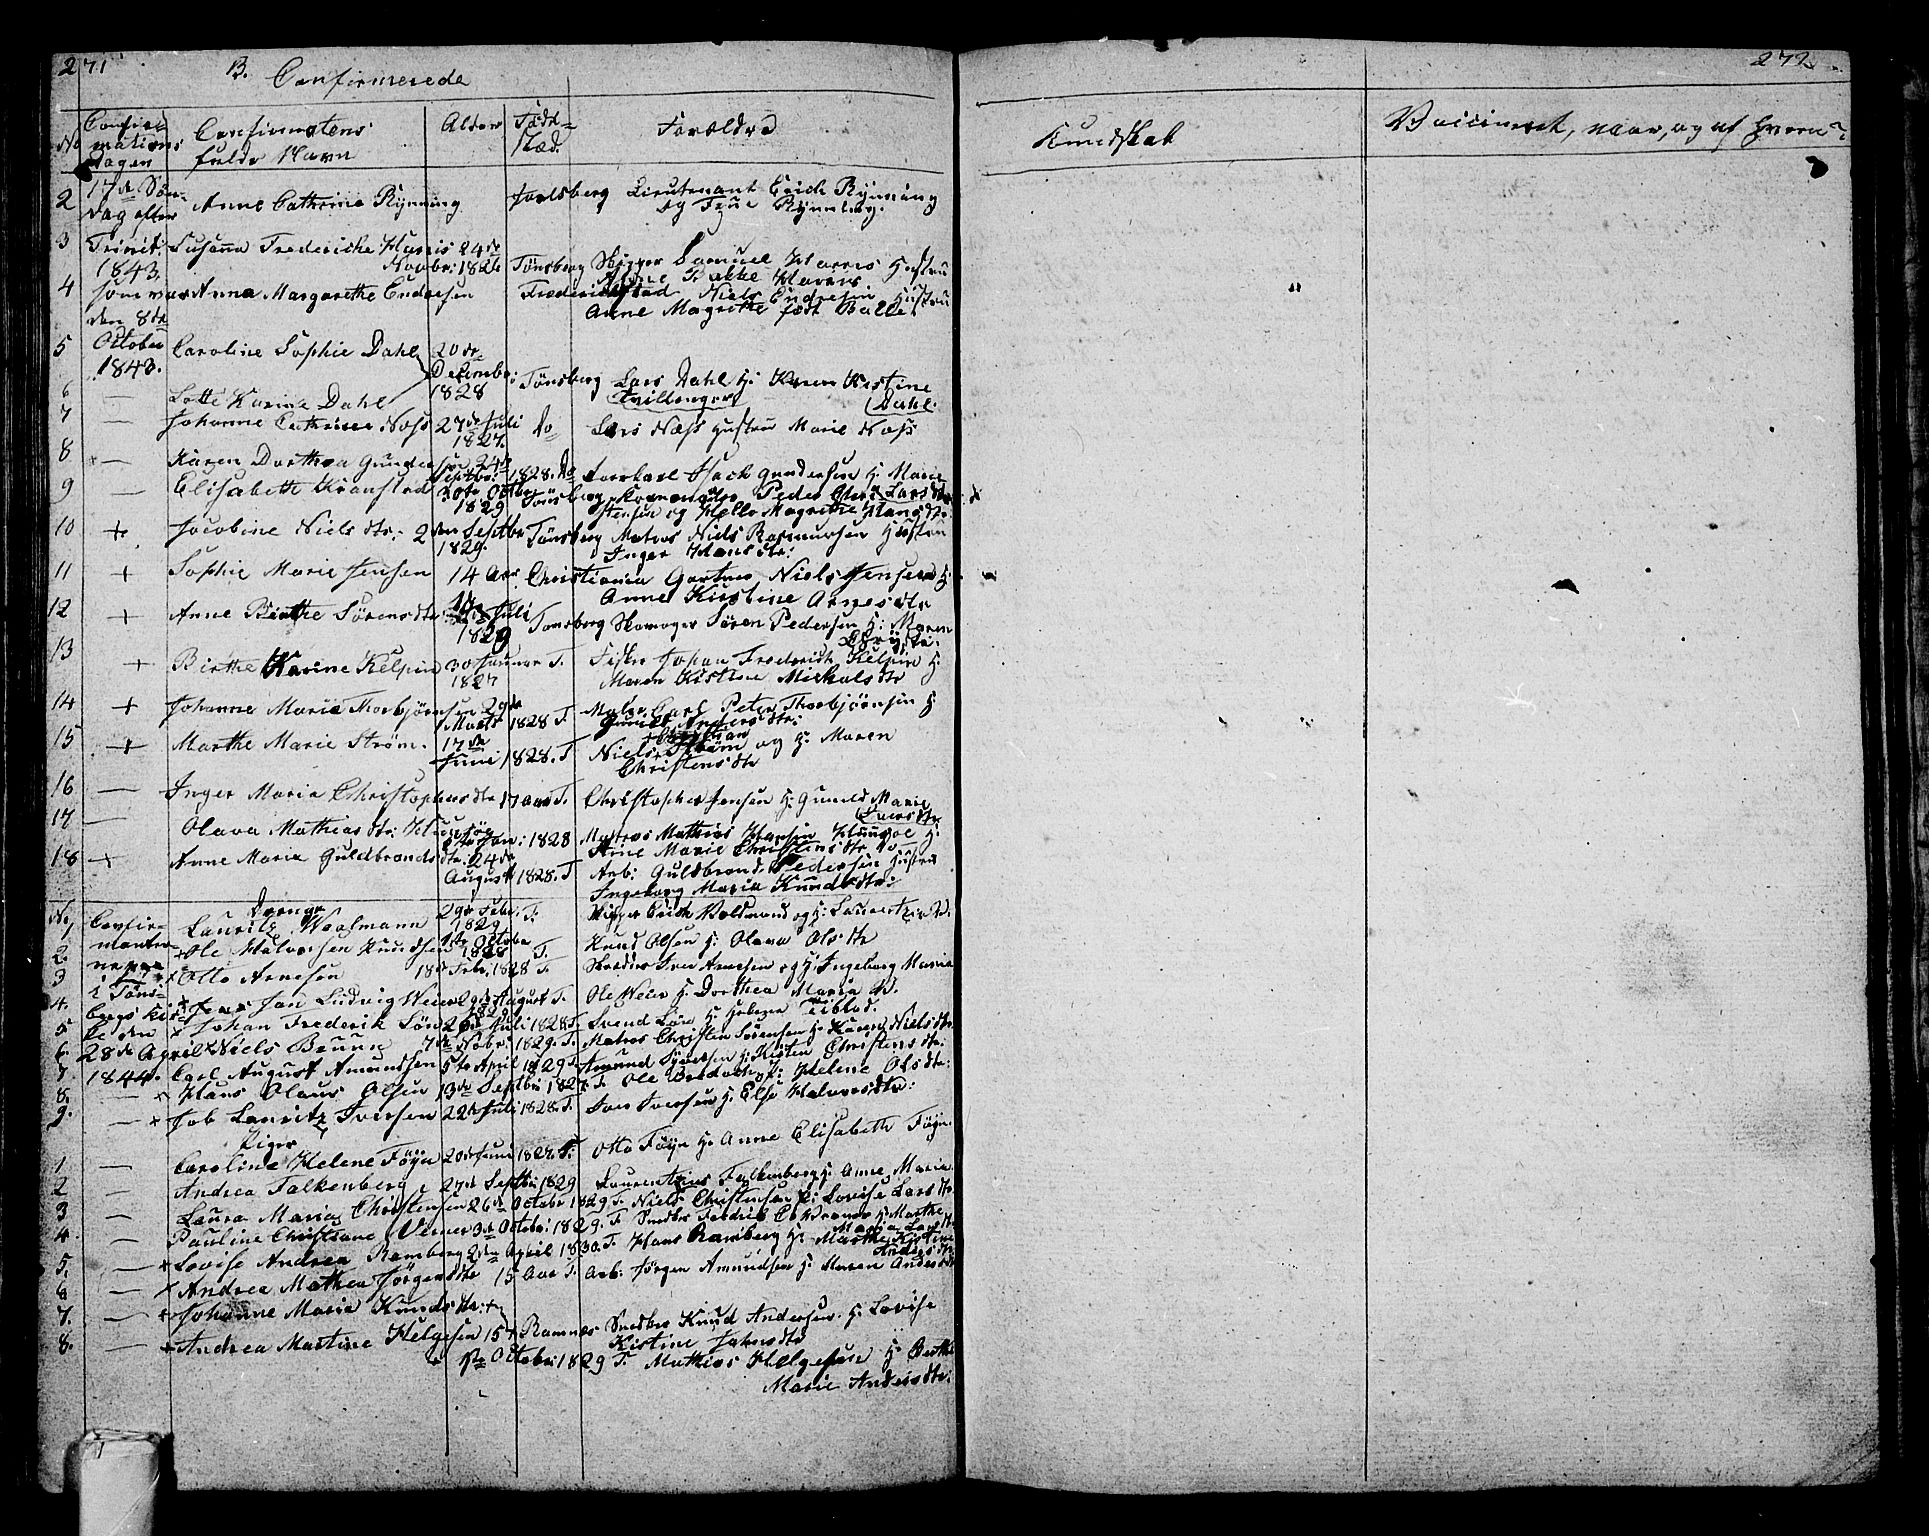 271 B. Confirmerede
No Confirmations Dagen
Confirmatens fulde Navn
Alder
Föde-Stæd.
Forældre
17de Søndag efter Trinit: 1843 som var den 8de October 1843.
2 Anne Cathrine Rynning Jarlsberg Lieutenant Erich Rynning og Frue Rynning.
3 Susana Fredericke Harris 24de Novbr: 1826 Tønsberg Skipper Samuel Harris Hustru Anne Bakke Harris
4 Anna Margarethe Endresen Frederichstad Niels Endresen Hustru Anne Magrethe født Balle.
5 Caroline Sophie Dahl 20de Decembr: 1828 Tønsberg Lars Dahl H: Karen Kistine Dahl.
6 — Lotte Karine Dahl Tvillenger
7 — Johanne Cathrine Næss 27de Juli 1827. Do Lars Næss Hustru Marie Næss
8 — Karen Dorthea Gundersen 24de Septbr: 1828. Do Isach Gundersen H: Marie Larsdtr
9 — Elisabeth Kranstad 30te Octbr 1829 Tønsberg Peder Christensen og Helle Magrethe Hansdtr.
10 + Jacobine Nielsdtr. 2den Septbr 1829. Tønsberg Matros Niels Rasmussen Hustru Inger Hansdtr:
11 + Sophie Marie Jensen 14 Aar Christiania Gartner Niels Jensen H: Anne Kirstine Arnesdtr
12 + Anne Birthe Sörensdtr Juli 1829 Tønsberg Skomager Sören Pedersen H: Maren
13 + Birthe Karine Kelpin 30 Januar T. 1827 Fisker Johan Frederich Kelpin H: Maren Kistine Michelsdtr
14 + Johanne Maria Thorbjörnsen 29de Marts 1828 T. Maler Carl Peter Thorbjörnsen H: Gunild Andersdtr:
15 + Marthe Marie Ström. 17de Juni 1828. T. Niels Christian Ström og H: Maren Christensdtr
16 — Inger Maria Christophersdtr 17 Aar T. Christopher Jensen H: Gunild Marie
17 — Olava Mathiasdtr: Jan: 1828 Matros Mathias Hansen H: Anne Marie Christensdtr Do
18 + Anne Maria Guldbrandsdtr. 24de August 1828. T. Arb: Guldbrand Pedersen Hustru Ingeborg Maria Knudsdtr:
No. Drenge
i Tönsbergs Kirke den 28de April 1844.
1 Lauritz Woalmann 29de Febr: 1829 T: Skipper Erich Voldmand og H: Laurentzia W.
2. + Ole Halvorsen Knudsen 1ste October 1828 T. Knud Olsen H: Olava Olsdtr
3 + Otto Arnesen 18de Febr. 1828 T. Skrædder Iver Arnesen og H: Ingeborg Marie
4. + Jens Jan Ludvig Weier 29de August T. 1829 Ole Weier H: Dorthea Maria W.
5 + Johan Frederik Lön 26de Juli 1828. T. Svend Lön H: Tiblad.
6. + Niels Bruun 7de Nobr: 1829. T. Matros Christen Sörensen H: Karen Nielsdtr.
7. Carl August Amundsen 5te April 1829 T. Amund Syvertsen H: Kisten Christensdtr.
8. — + Hans Olaus Olsen 13de Septbr: 1827. T. Ole H: Helene Olsdtr:
9. — + Job Lauritz Iversen 22de Juli 1828. T. Iver Iversen H: Else Halvorsdtr:
Piger
1 — Caroline Helene Föyn 20de Juni 1827. T: Otto Föyn H: Anne Elisabeth Föyn.
2 — Andrea Falkenberg 27de Septbr: 1829 Laurentzius Falkenberg H: Anne Maria
3 — Laura Maria Christensen 26de Octobr 1829 T. Niels Christensen H: Lovise Larsdtr.
4. — Pauline Christiane Werner 3de Octobr: 1829. T. Snedker Fredrik Werner H: Marthe Maria Larsdtr.
5. — + Lovise Andrea Ramberg 2den April 1830. T. Hans Ramberg H: Marthe Kistine Andersdtr
6 — + Andrea Mathea Jörgensdtr 15 Aar T. Arb: Jörgen Amundsen H: Maren Andersdtr
7. — + Johanne Maria Knudsdtr: + 15 Ramnæs Snedker Knud Andersen. H: Lovise Kistine Jahnsdtr
8. — + Andrea Martine Helgesen 1ste Octobr: 1829 T. Mathias Helgesen H: Berthe Marie Andersdtr:
272.
Kundskab
Vaccineret, naar, og af hvem?